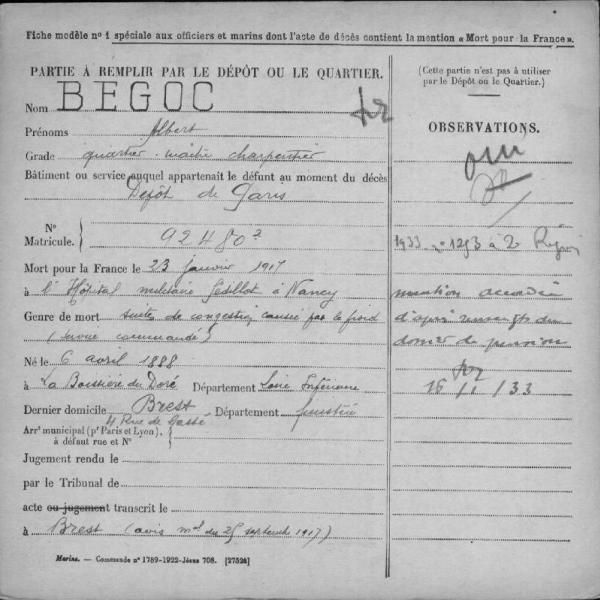 Fiche modèle n° 1 spéciale aux officiers et marins dont l'acte de décès contient la mention « Mort pour la France ».
PARTIE À REMPLIR PAR LE DÉPÔT OU LE QUARTIER.
Nom BEGOC
Prénoms Albert
Grade quartier-maître charpentier
Bâtiment ou service auquel appartenait le défunt au moment du décès
Dépôt de Paris
N°
Matricule. 92480²
Mort pour la France le 23 janvier 1917
à l'Hôpital militaire à Nancy
Genre de mort suites de congestion causée par le froid
(service commandé)
Né le 6 avril 1888
à La Boissière du Doré Département Loire Inférieure
Dernier domicile Brest Département Finistère
4 Rue de
Arrt municipal (pr Paris et Lyon),
à défaut rue et N°
Jugement rendu le
par le Tribunal de
acte ou jugement transcrit le
à Brest (avis mel du 25 septembre 1917)
Marine. — Commande n° 1789-1922-Jésus 708. [27524]
(Cette partie n'est pas à utiliser
par le Dépôt ou le Quartier.)
OBSERVATIONS.
oui
1933 n° 1293 à 2
mention accordée
d'après du
dossier de pension
16/1/33